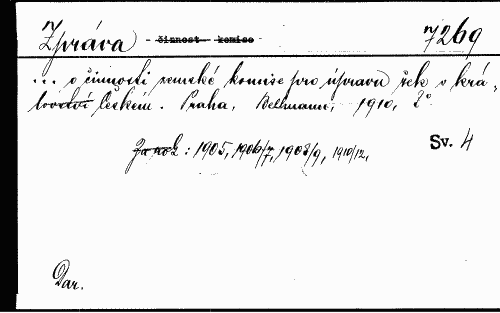 Zpráva - činnost - komise 7269
... o činnosti zemské komise pro úpravu řek v krá-
lovství českém. Praha, Bellmann, 1910, 2°
Za rok : 1905, 1906/7, 1908/9, 1910/12, Sv. 4
Dar.